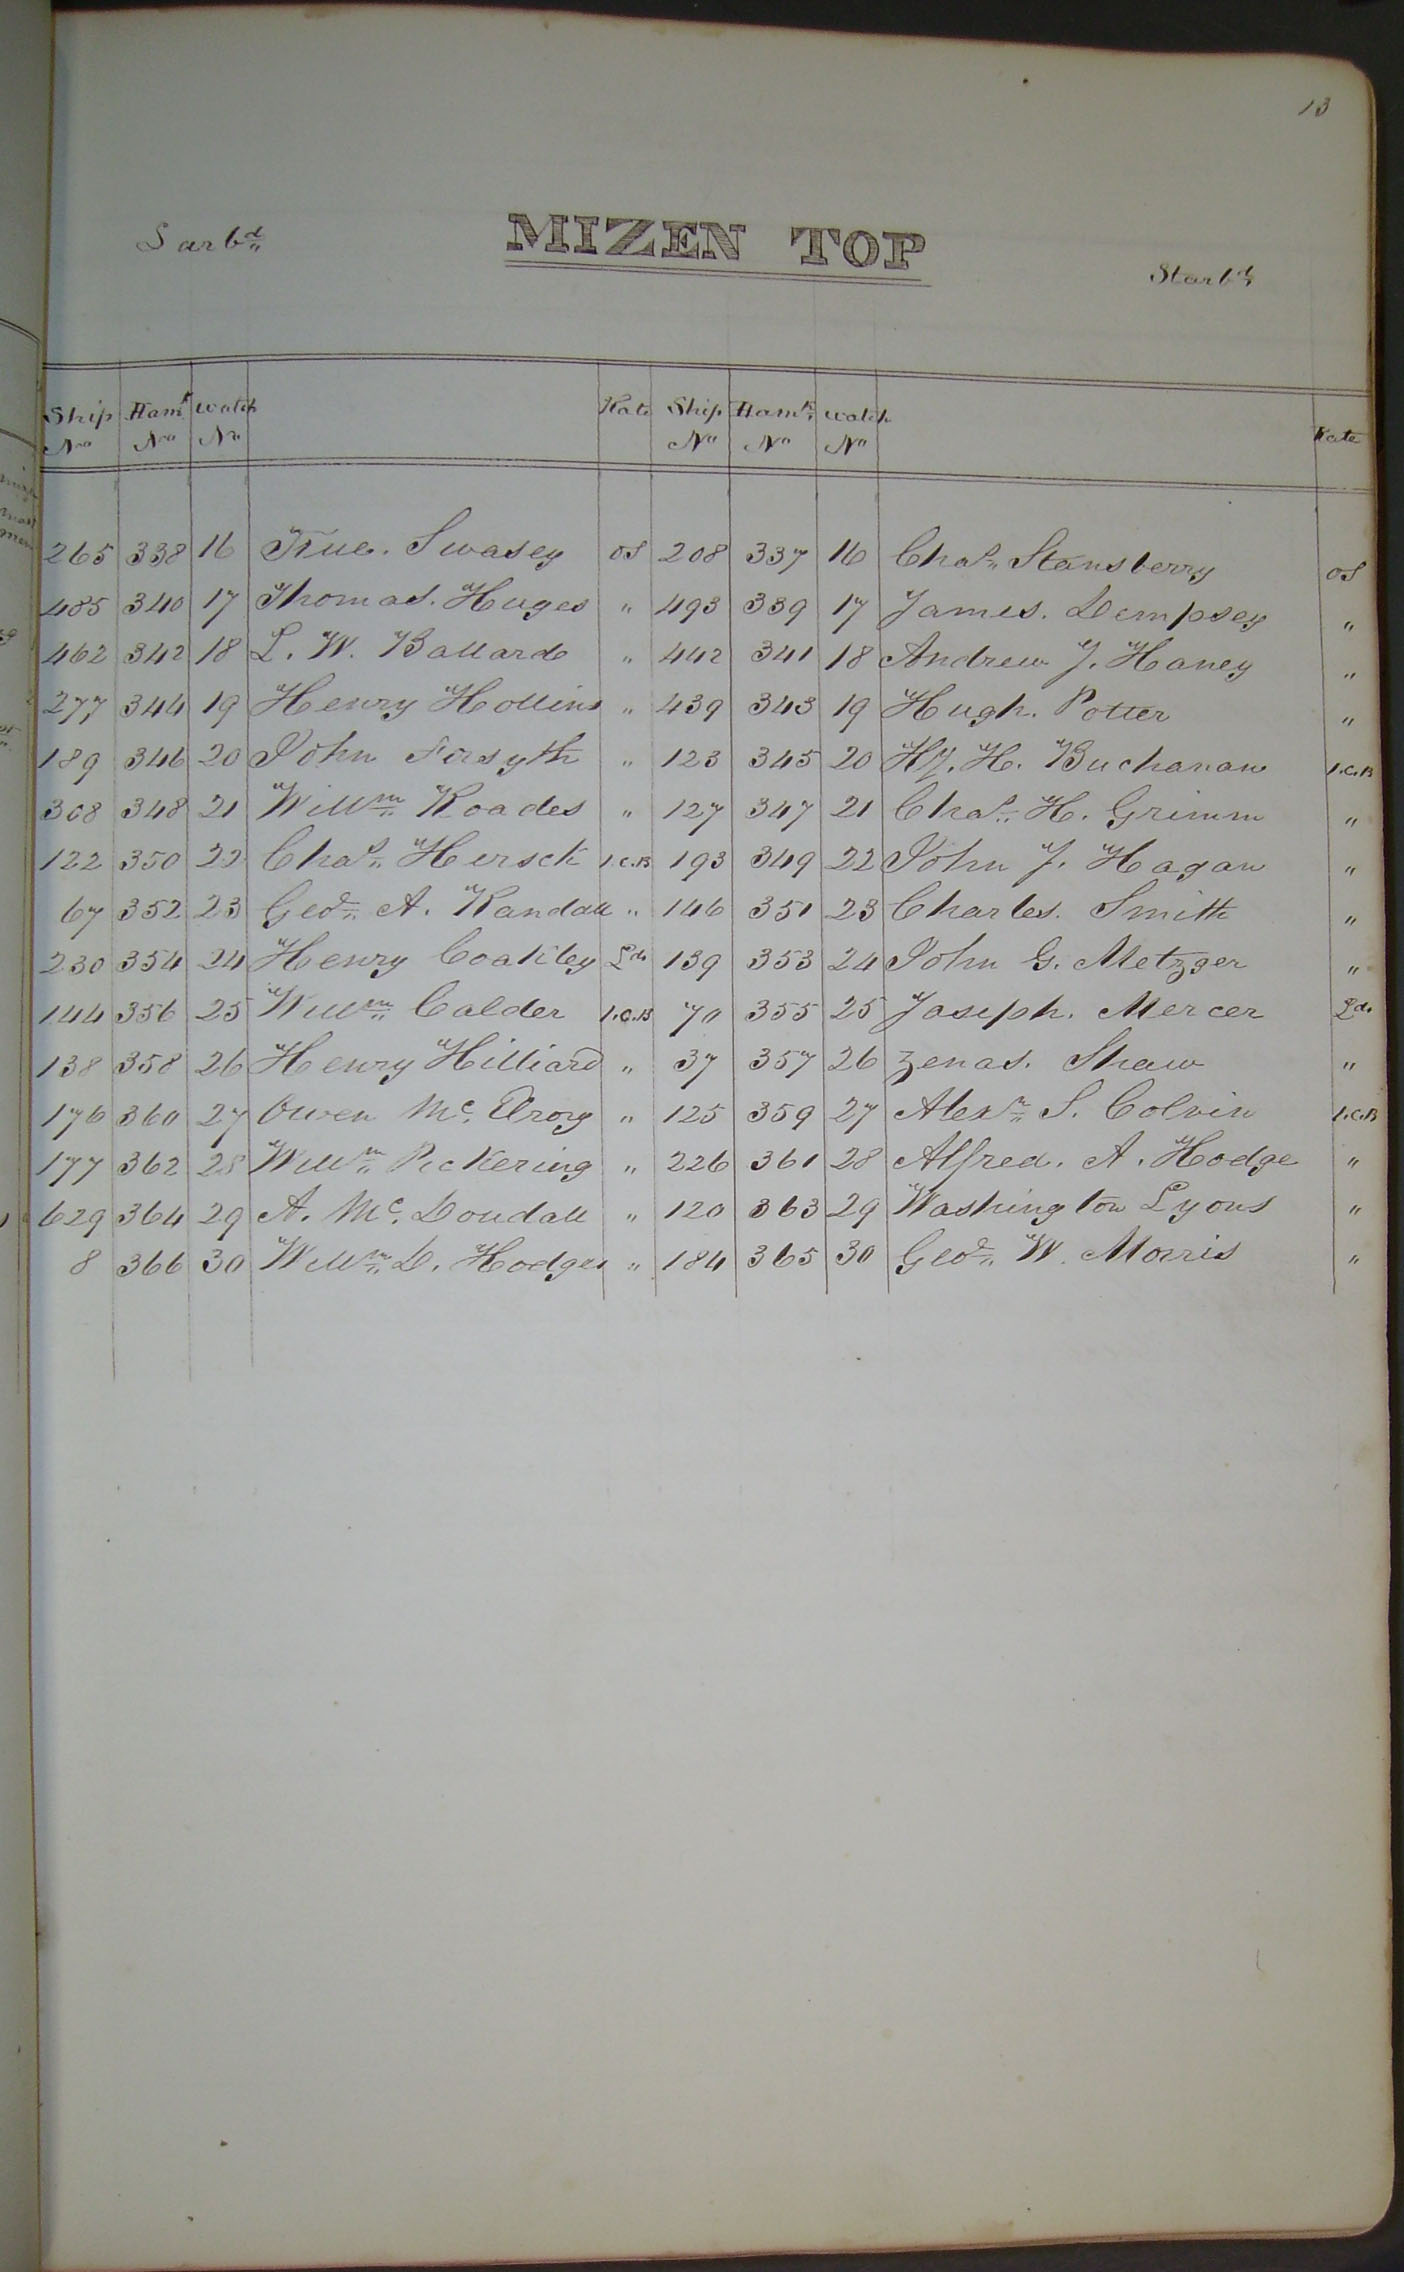 13
Sarbd MIZEN TOP Starbd
Ship Hamk Watch Rate Ship Hamk Watch Rate
No No No No No No
265 338 16 True. Swasey OS 208 337 16 Chas. Stansberry OS
485 340 17 Thomas. Huges " 493 339 17 James. Dempsey "
462 342 18 L. W. Ballard " 442 341 18 Andrew J. Haney "
277 344 19 Henry Hollins " 439 343 19 Hugh. Potter "
189 346 20 John Forsyth " 123 345 20 Hy. H. Buchanan 1.C.B
308 348 21 Willm Roades " 127 347 21 Chas. H. Grimm "
122 350 22 Chas. Hersck 1.C.B 193 349 22 John J. Hagan "
67 352 23 Geo. A. Randall " 146 351 23 Charles. Smith "
230 354 24 Henry Coakley Lds 139 353 24 John G. Metzger "
144 356 25 Willm Calder 1.C.B 70 355 25 Joseph. Mercer Lds
138 358 26 Henry Hilliard " 37 357 26 Zenas. Shaw "
176 360 27 Owen Mc. Elroy " 125 359 27 Alexr S. Colvin 1.C.B
177 362 28 Willm Pickering " 226 361 28 Alfred. A. Hodge "
629 364 29 A. Mc. Doudall " 120 363 29 Washington Lyons "
8 366 30 Willm D. Hodges " 184 365 30 Geo. W. Morris "